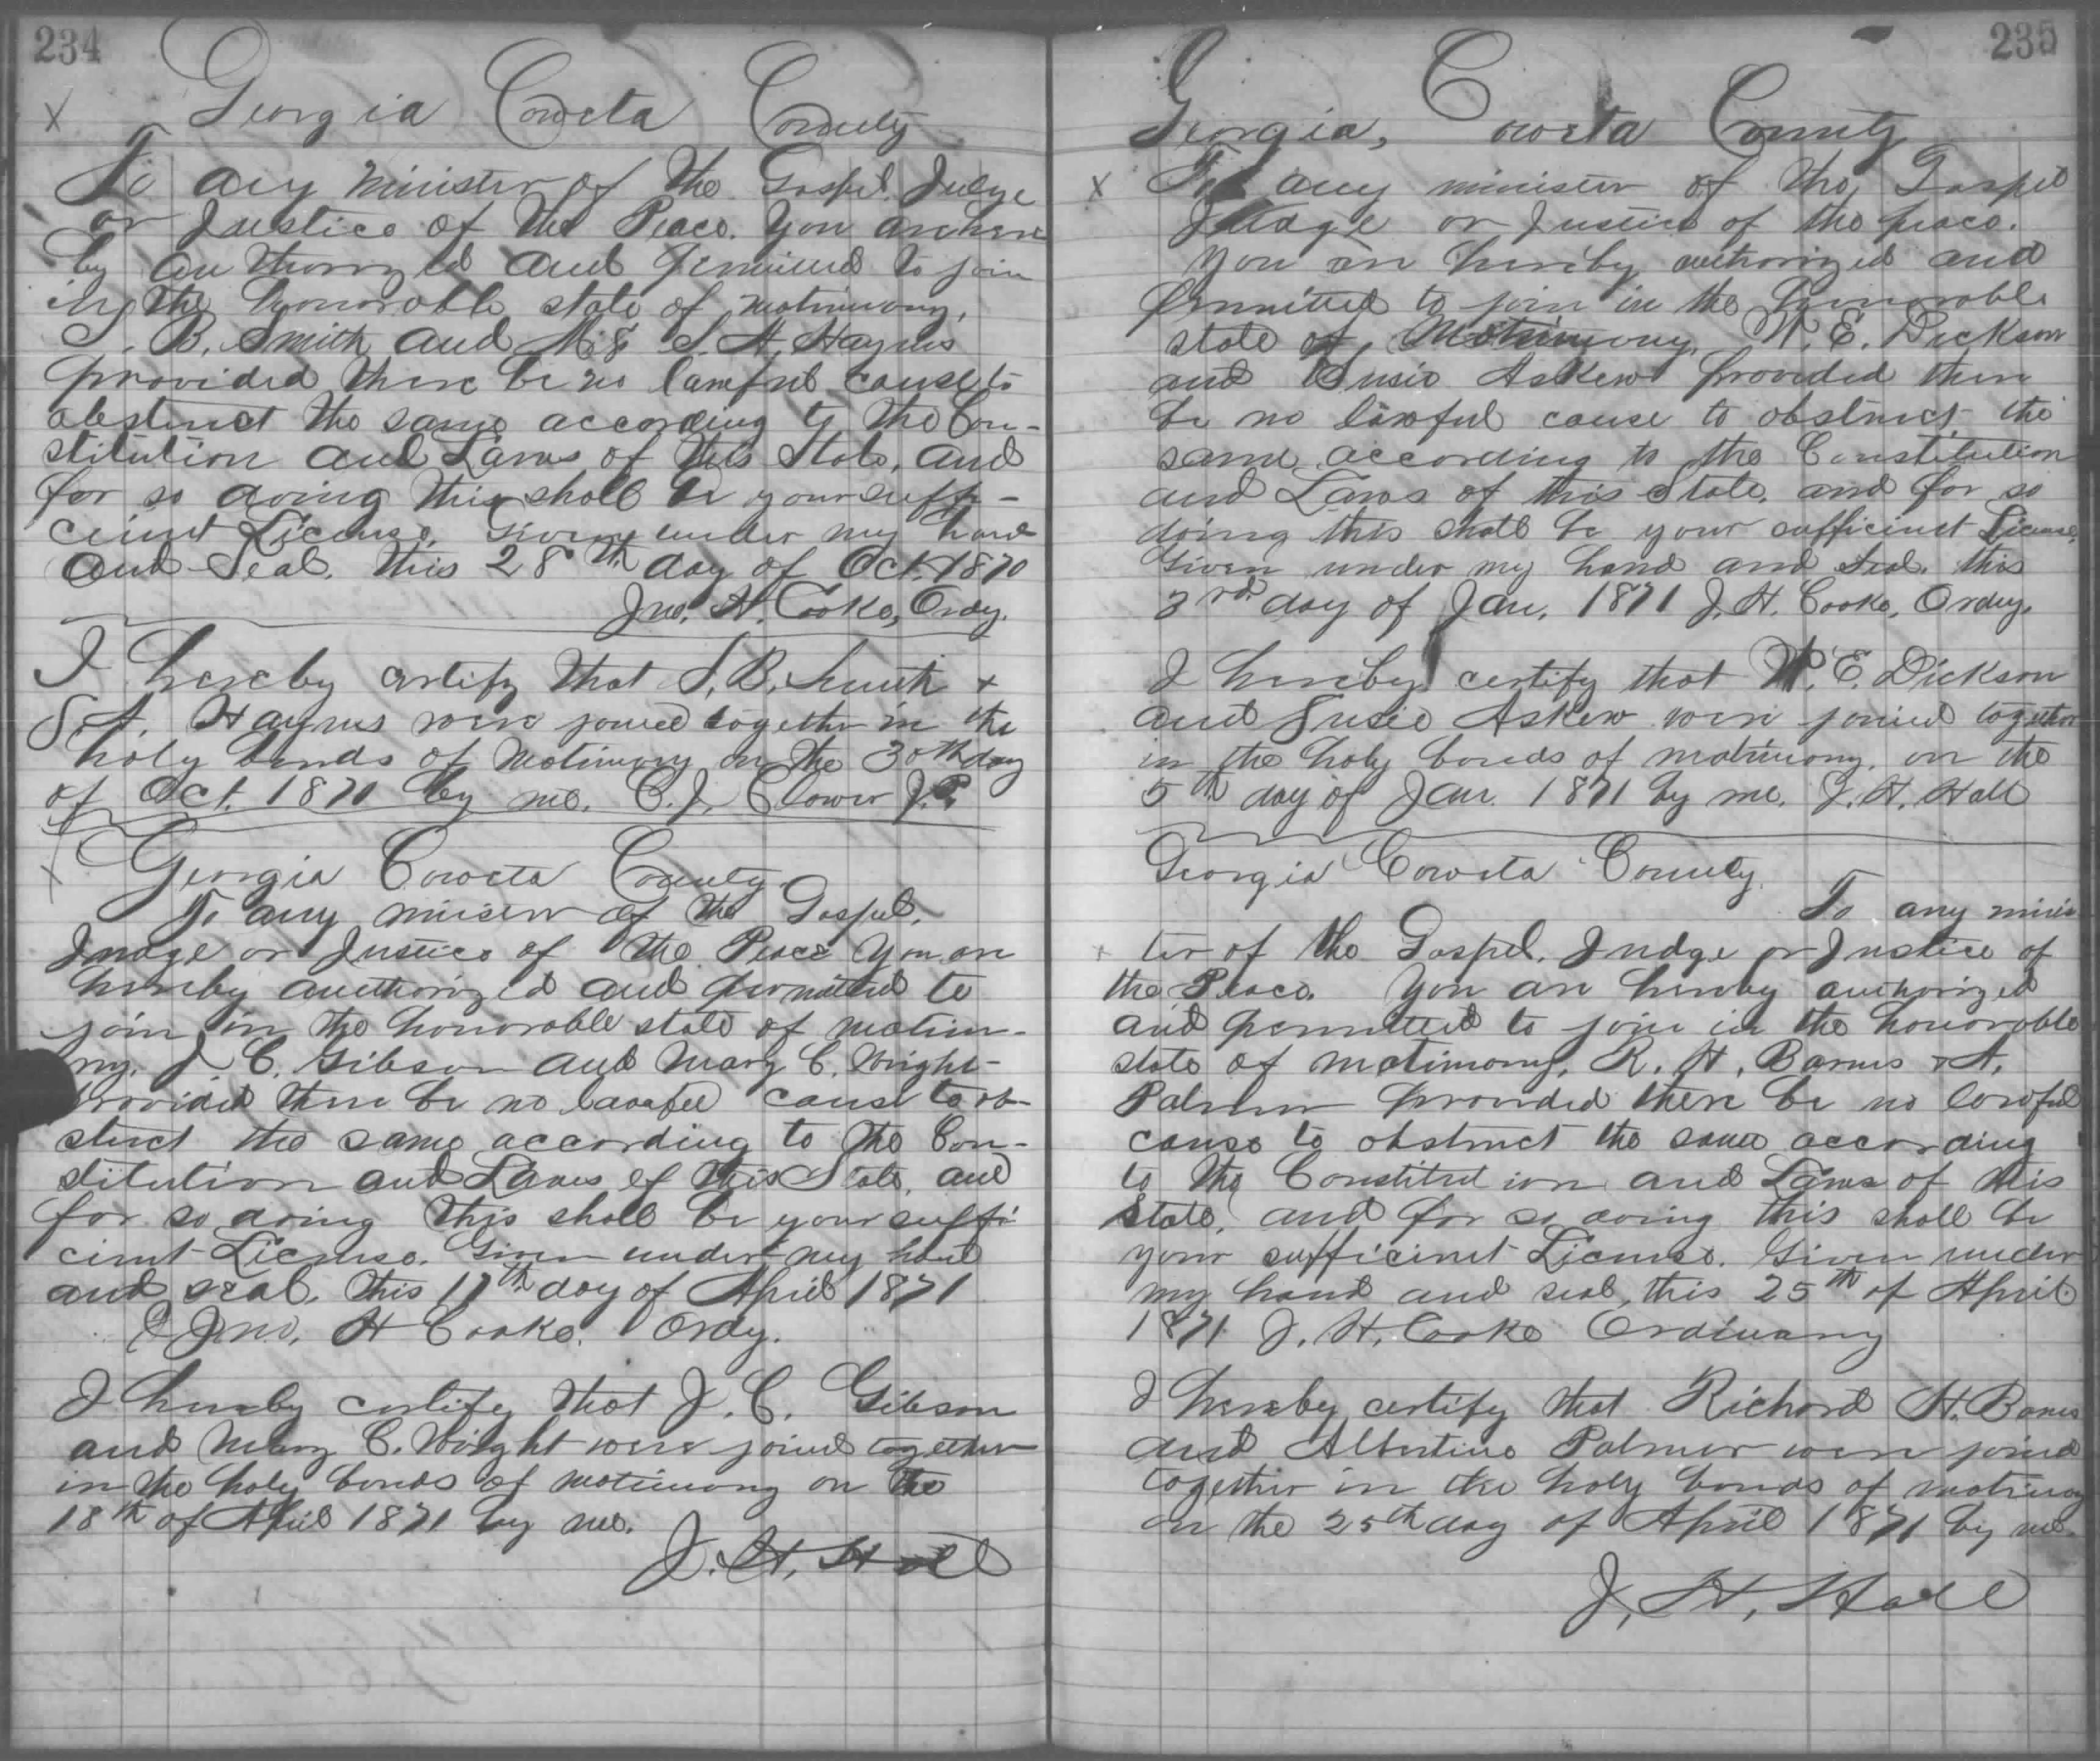 234
Georgia Coweta County
To any minister of the Gospel Judge
or Justice of the Peace. You are here
by authorized and permitted to join
in the honorable state of matimony,
S. B. Smith and S. A. Haynes
provided there be no lawful cause to
obstruct the same according to the Con-
stitution and Laws of this State, and
for so doing this shall be your suffi-
cient License. Given under my hand
and Seal. this 28th day of Oct. 1870
Jno. H. Cooke, Ordy.
I hereby certify that S. B. Smith +
S. A. Haynes were joined together in the
holy bonds of Matimony on the 30th day
of Oct. 1870 by me. C. J. Clower J.P.
Georgia Coweta County
To any miniser of the Gospel.
Judge or Justice of the Peace You are
hereby authorized and permitted to
join in the honorable state of matim-
ny. J. C. Gibson and Mary C. Wright
provided there be no lawful cause to ob-
struct the same according to the Con-
stitution and Laws of this State, and
for so doing this shall be your suffi
cient License. Given under my hand
and seal. this 17th day of April 1871
Jno. H Cooke. Ordy.
I hereby certify that J. C. Gibson
and Mary C. Wright were joined together
in the holy bonds of matimony on the
18th of April 1871 by me.
J. H. Hall
235
Georgia, Coweta County
To any minister of the Gospel
Judge or Justice of the peace.
You are hereby authorized and
permitted to join in the honorable
state of Matimony. W. E. Dickson
and Susie Askew provided there
be no lawful cause to obstruct the
same according to the Constitution
and Laws of this State. and for so
doing this shall be your sufficient License,
Given under my hand and Seal. this
3rd day of Jan. 1871 J. H. Cooke, Ordy.
I hereby certify that W. E. Dickson
and Susie Askew were joined together
in the holy bonds of matrimony. on the
5th day of Jan. 1871 by me. J. H. Hall
Georgia Coweta County.
To any minis
ter of the Gospel. Judge or Justice of
the Peace. You are hereby authorized
and permitted to join in the honorable
state of matimony, R. H. Barnes + A.
Palmer provided there be no lawful
cause to obstruct the same according
to the Constitution and Laws of this
State. and for so doing this shall be
your sufficient License. Given under
my hand and seal, this 25th of April
1871 J. H. Cooke Ordinary
I hereby certify that Richard H. Barnes
and Albertine Palmer were joined
together in the holy bonds of matimony
on the 25th day of April 1871 by me.
J. H. Hall